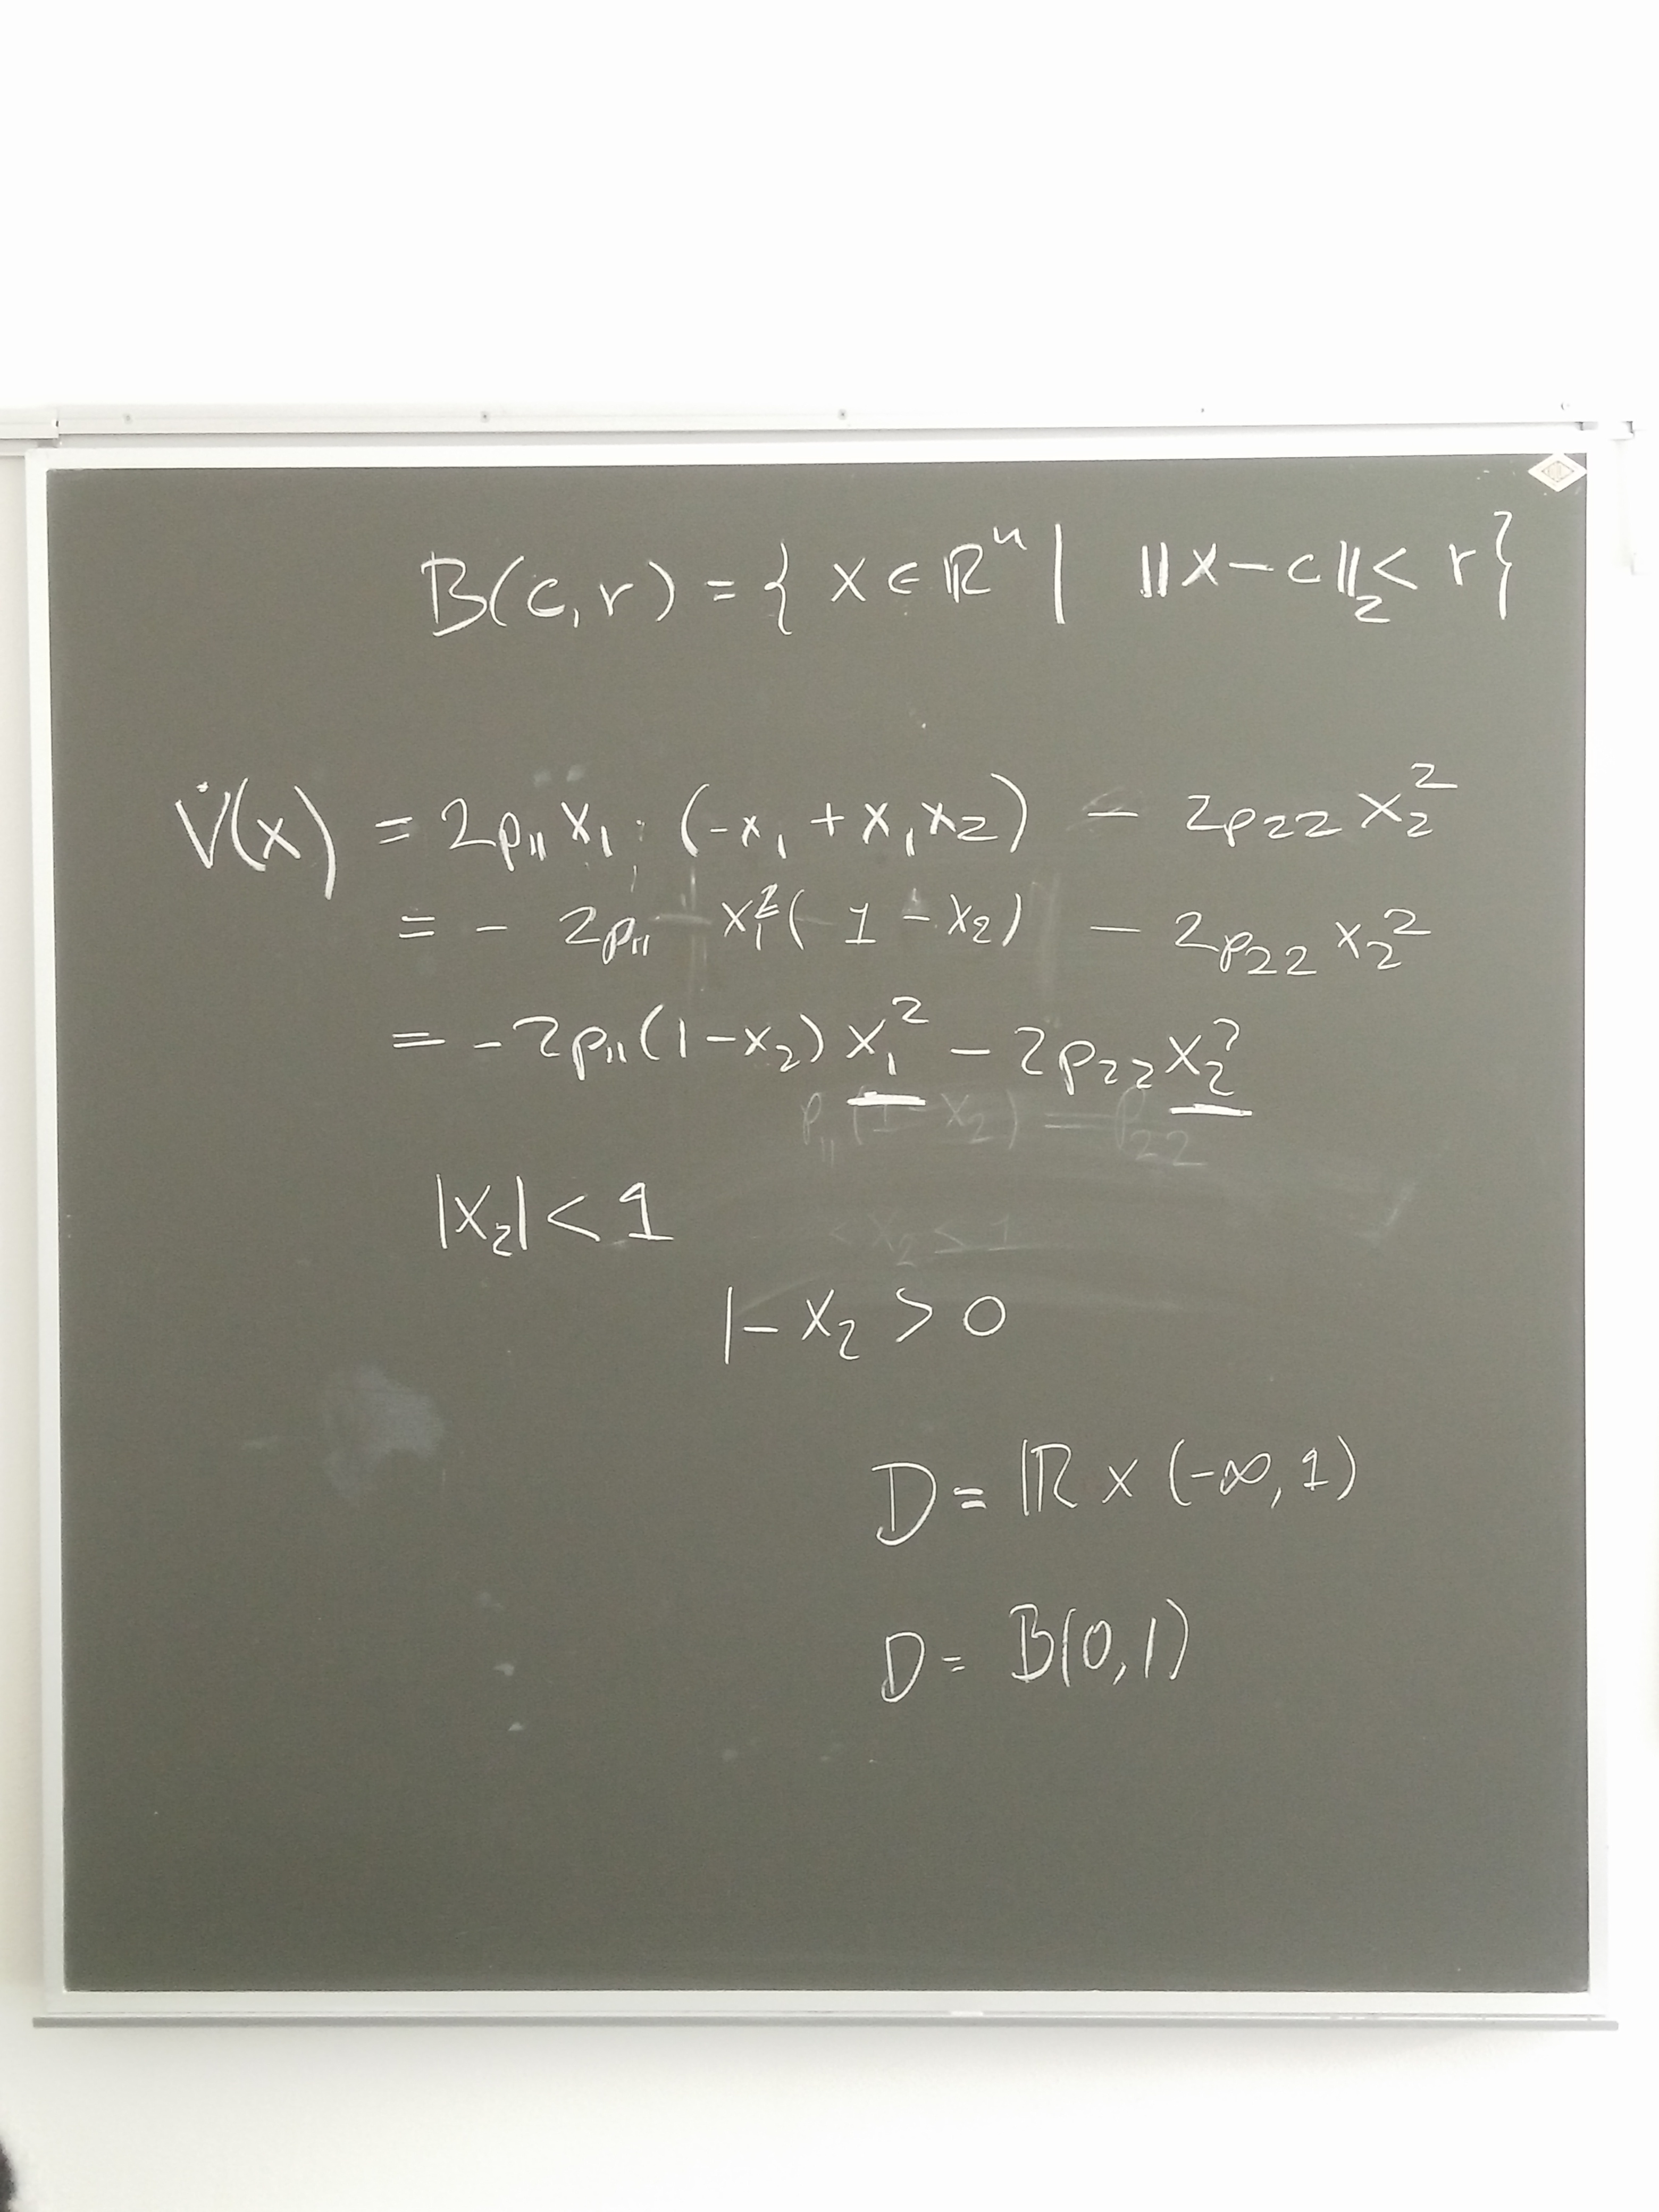 B(c,r) = { x ∈ ℝⁿ | ||x − c||₂ < r}
V̇(x) = 2p₁₁x₁ · (−x₁ + x₁x₂) − 2p₂₂x₂²
= − 2p₁₁ x₁²(1 − x₂) − 2p₂₂x₂²
= −2p₁₁(1−x₂)x₁² − 2p₂₂x₂²
p₁₁(1−x₂) = p₂₂
|x₂| < 1
< x₂ < 1
1 − x₂ > 0
D = ℝ × (−∞, 1)
D = B(0,1)